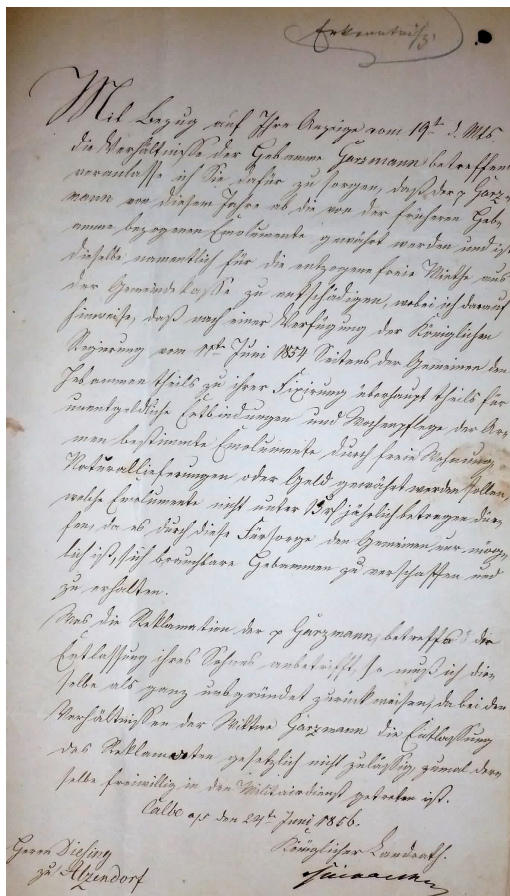 Erkenntniß
Mit Bezug auf Ihre Anzeige vom 19t d. Mts.
die Verhältnisse der Hebamme Garzmann betreffend
veranlasse ich Sie dafür zu sorgen, daß der p Garz-
mann von diesem Jahre ab die von der früheren Heb-
amme bezogenen Emolumente gewährt werden und ist
dieselbe namentlich für die entzogene freie Miethe aus
der Gemeindekasse zu entschädigen, wobei ich darauf
hinweise, daß nach einer Verfügung der Königlichen
Regierung vom Juni 1854 Seitens der Gemeinen den
Hebammen theils zu ihrer Fixirung überhaupt theils für
unentgeldliche Entbindungen und Wochenpflege der Ar-
men bestimmte Emolumente durch freie Wohnung,
Naturallieferungen oder Geld gewährt werden sollen,
welche Emolumente nicht unter jährlich betragen dür-
fen, da es durch diese Fürsorge den Gemeinen nur mög-
lich ist, sich brauchbare Hebammen zu verschaffen und
zu erhalten.
Was die Reklamation der p Garzmann, betreffs die
Entlassung ihres Sohnes anbetrifft, so muß ich die-
selbe als ganz unbgründet zurück weisen, da bei den
Verhältnissen der Wittwe Garzmann die Entlassung
des Reklamaten gesetzlich nicht zulässig, zumal der-
selbe freiwillig in den Militairdienst getreten ist.
Calbe a/s den 24t Juni 1856.
Königlicher Landrath.
Herrn Diesing
zu Atzendorf